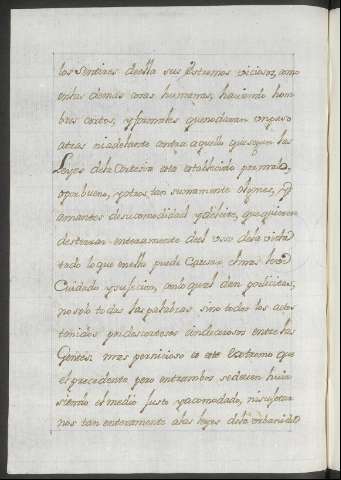 los sentires deella sus Estremos viciosos, como
enlas demas cosas humanas, haviendo hom
bres cortos, y formales quenodaran un paso
atras niadelante contra aquello quesegun las
Leyes dela Cortesia esta establecido por malo,
opor bueno, y otros tan sumamente
amantes desucomodidad y deleite, que quieren
desterrar enteramente del uso dela vida
todo loque enella puede Causar el mas leve
Cuidado y sujecion, con lo qual dan por licitas,
no solo todas las palabras sino todos los actos
tenidos por descorteses e indecorosos entre las
Gentes. mas pernicioso es este Extremo que
el precedente pero entrambos sedeven huir
siendo el medio justo y acomodado, ni sujetar
nos tan enteramente alas leyes dela urbanidad